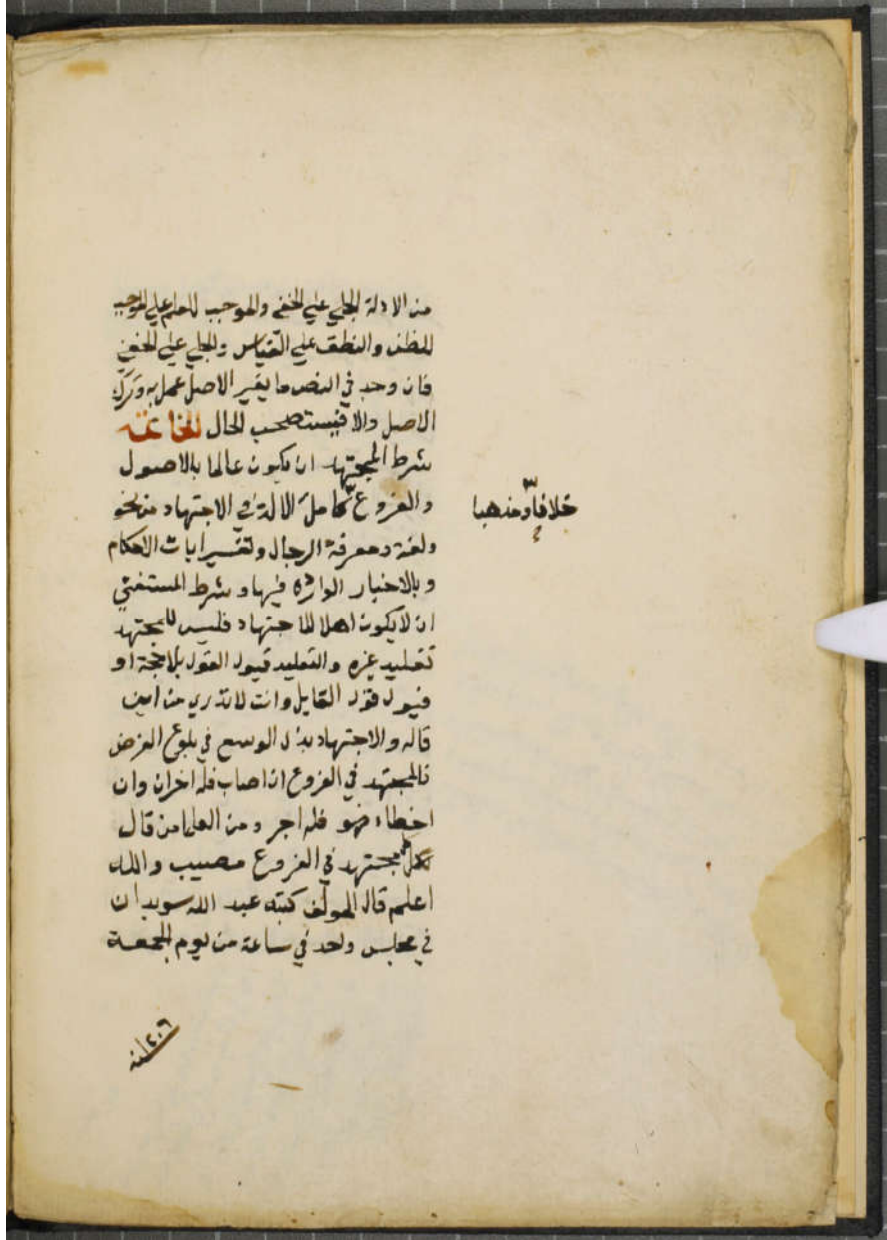 من الادلة الجلي علي الخفي والموجب للعلم علي الموجب
للظن والنطق علي القياس والجلي علي الخفي
فان وجد في النص ما يغير الاصل عمل به وترك
الاصل والا فيستصحب الحال الخاتمه
شرط المجتهد ان يكون عالما بالاصول
والفروع كامل الالة في الاجتهاد من نحو
خلافا ومذهبا
ولغة ومعرفة الرجال وتفسير ايات الاحكام
وبالاخبار الواردة فيها وشرط المستفتي
ان لا يكون اهلا للاجتهاد فليس للمجتهد
تقليد غيره والتقليد قبول القول بلا حجة او
قبول قول القايل وانت لا تدري من اين
قاله والاجتهاد بذل الوسع في بلوغ الغرض
فالمجتهد في الفروع ان اصاب فله اجران وان
اخطاء فهو فله اجر ومن العلما من قال
كل مجتهد في الفروع مصيب والله
اعلم قال المولف كتبه عبد الله سويدان
في مجلس واحد في ساعة من يوم الجمعة
سنة ١٢٠٦